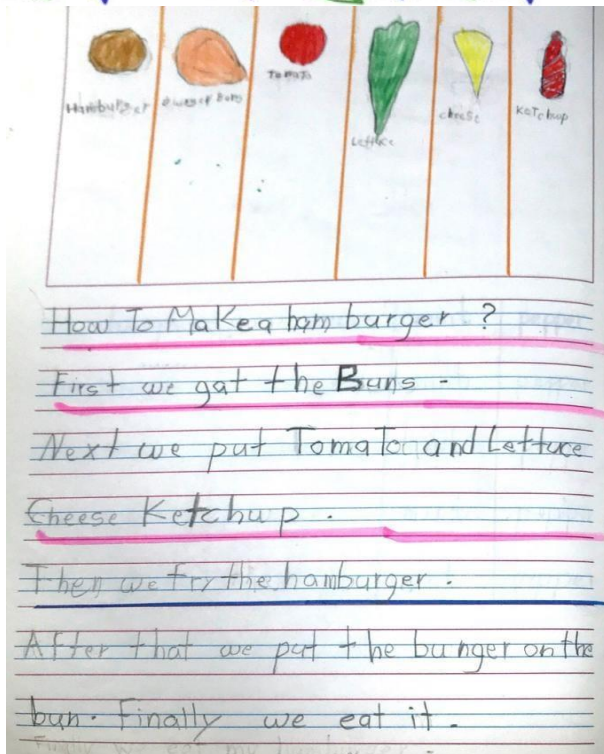 Hamburger
Buns
Tomato
Lettuce
cheese
Ketchup
How To Make a ham burger ?
First we gat the Buns -
Next we put Tomato and Lettuce
Cheese Ketchup .
Then we fry the hamburger .
After that we put the bunger on the
bun. Finally we eat it .